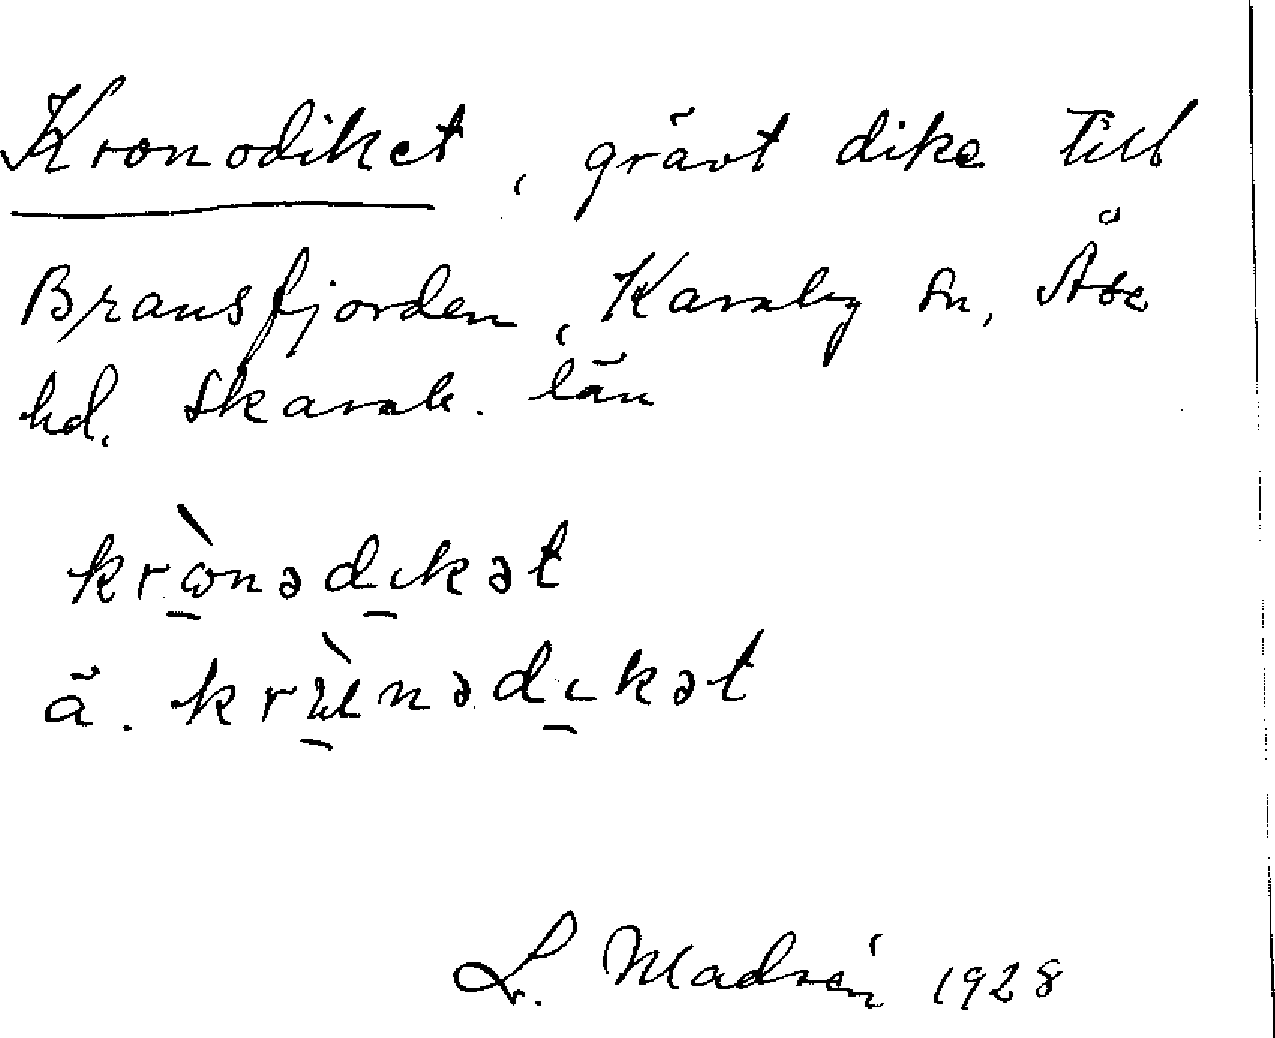 Kronodiket, grävt dike till
Bransfjorden, Karaby sn, Åse
hd. Skarab. län
krὼnədıkət
ä. krὼnədıkət
L. Madsén 1928